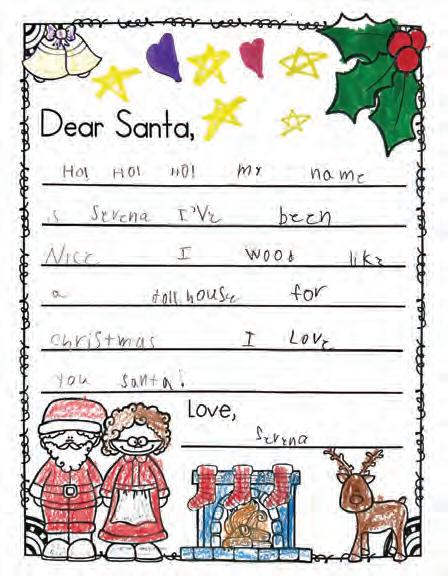 Dear Santa,
Ho! Ho! Ho! my name
is Serena I've been
Nice I wood like
a doll house for
christmas I Love
you santa!
Love,
Serena